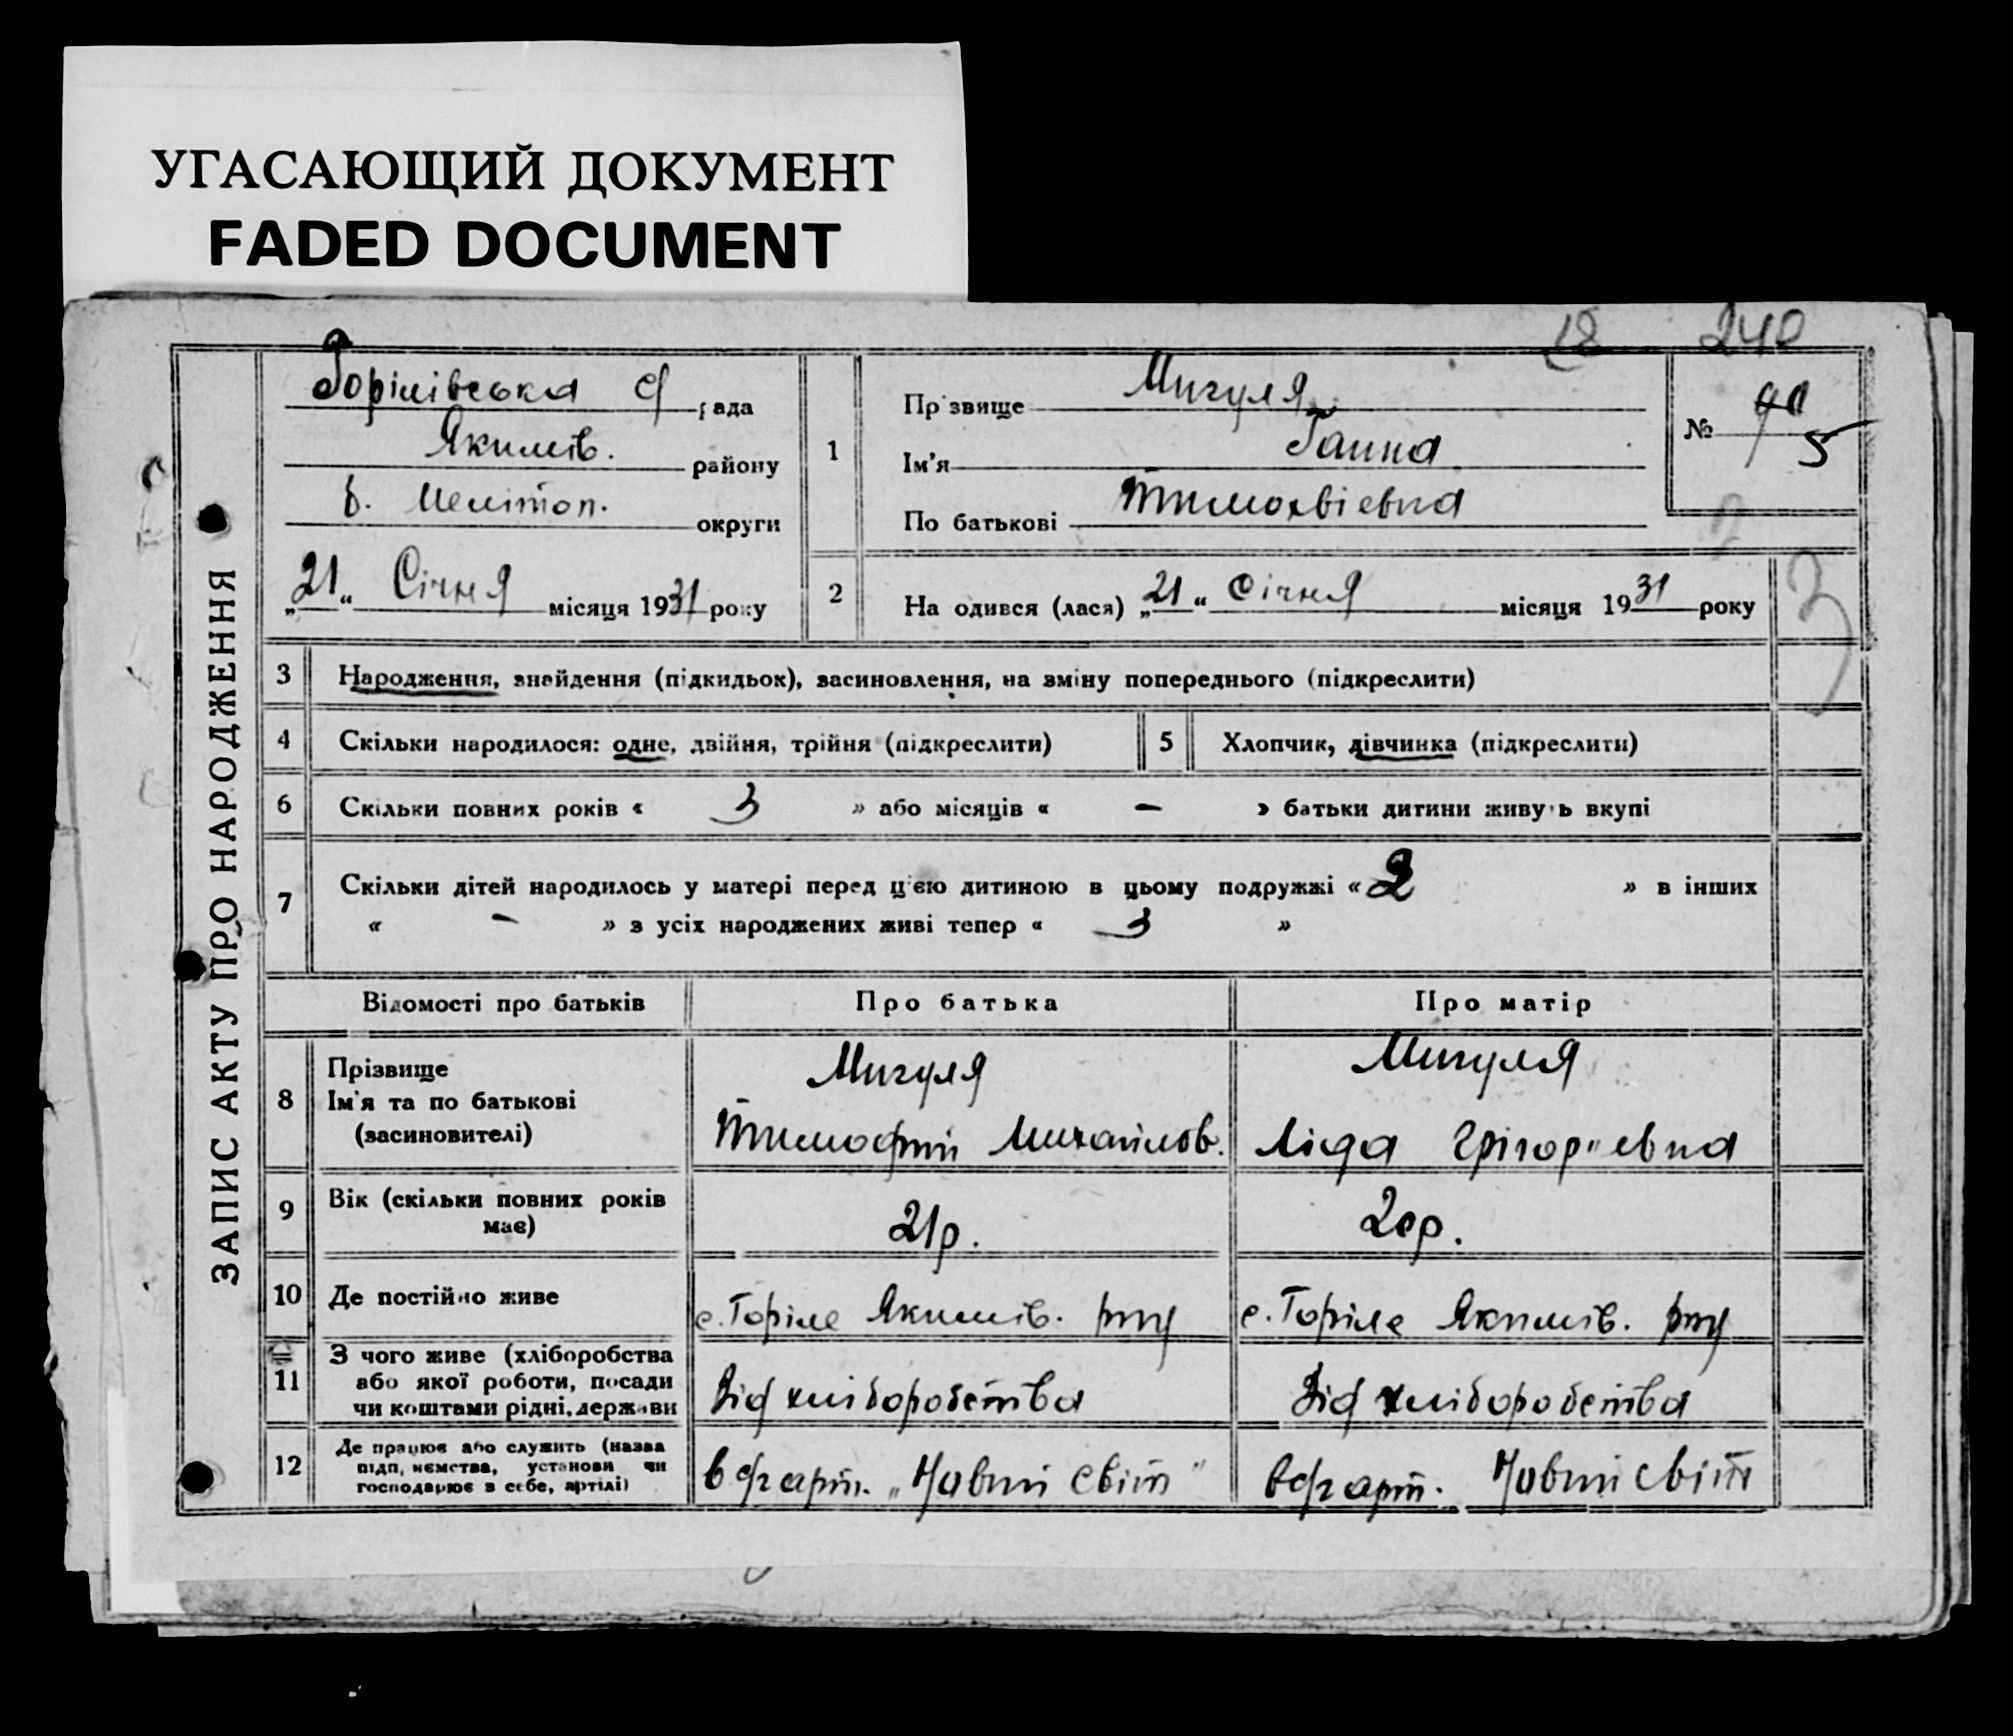 УГАСАЮЩИЙ ДОКУМЕНТ
FADED DOCUMENT
18 240
ЗАПИС АКТУ ПРО НАРОДЖЕННЯ
Горілівська с/ рада
Якимів. району
б. Мелітоп. округи
„21“ Січня місяця 1931 року
1
Прізвище Мигуля
Ім'я Ганна
По батькові Тимохвіевна
№ 5
2 На одився (лася) „21“ Січня місяця 1931 року
3
3 Народження, знайдення (підкидьок), засиновлення, на зміну попереднього (підкреслити)
4 Скільки народилося: одне, двійня, трійня (підкреслити) 5 Хлопчик, дівчинка (підкреслити)
6 Скільки повних років « 3 » або місяців « – » батьки дитини живуть вкупі
7 Скільки дітей народилось у матері перед цією дитиною в цьому подружжі « 2 » в інших
« – » з усіх народжених живі тепер « 3 »
Відомості про батьків Про батька Про матір
8 Прізвище
Ім'я та по батькові
(засиновителі)
Мигуля
Тимофій Михайлов.
Мигуля
Ліда Грігор"евна
9 Вік (скільки повних років має) 21р. 20р.
10 Де постійно живе с. Горіле Якимів. р-ну с. Горіле Якимів. р-ну
11 З чого живе (хліборобства
або якої роботи, посади
чи коштами рідні, держави
Від хліборобства Від хліборобства
12 Де працює або служить (назва
підприємства, установи чи
господарює в себе, артілі)
в с/г арт. „Новий світ" в с/г арт. Новий світ